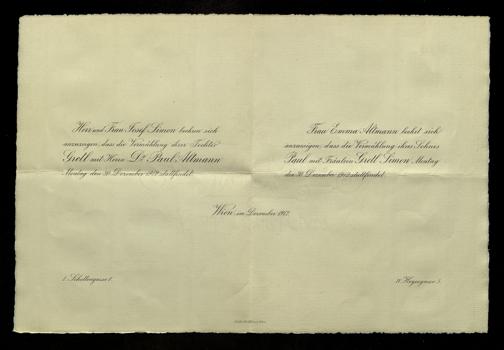 Herr und Frau Josef Simon beehren sich
anzuzeigen, dass die Vermählung ihrer Tochter
Gretl mit Herrn Dr. Paul Altmann
Montag den 30. Dezember 1912 stattfindet.
Frau Emma Altmann beehrt sich
anzuzeigen, dass die Vermählung ihres Sohnes
Paul mit Fräulein Gretl Simon Montag
den 30. Dezember 1912 stattfindet.
Wien, im Dezember 1912.